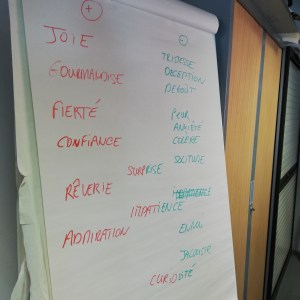 +
-
JOIE
TRISTESSE
GOURMANDISE
DÉCEPTION
DÉGOÛT
FIERTÉ
PEUR
ANXIÉTÉ
CONFIANCE
COLÈRE
SURPRISE
SOLITUDE
RÊVERIE
IMPATIENCE
ADMIRATION
ENNUI
JALOUSIE
CURIOSITÉ